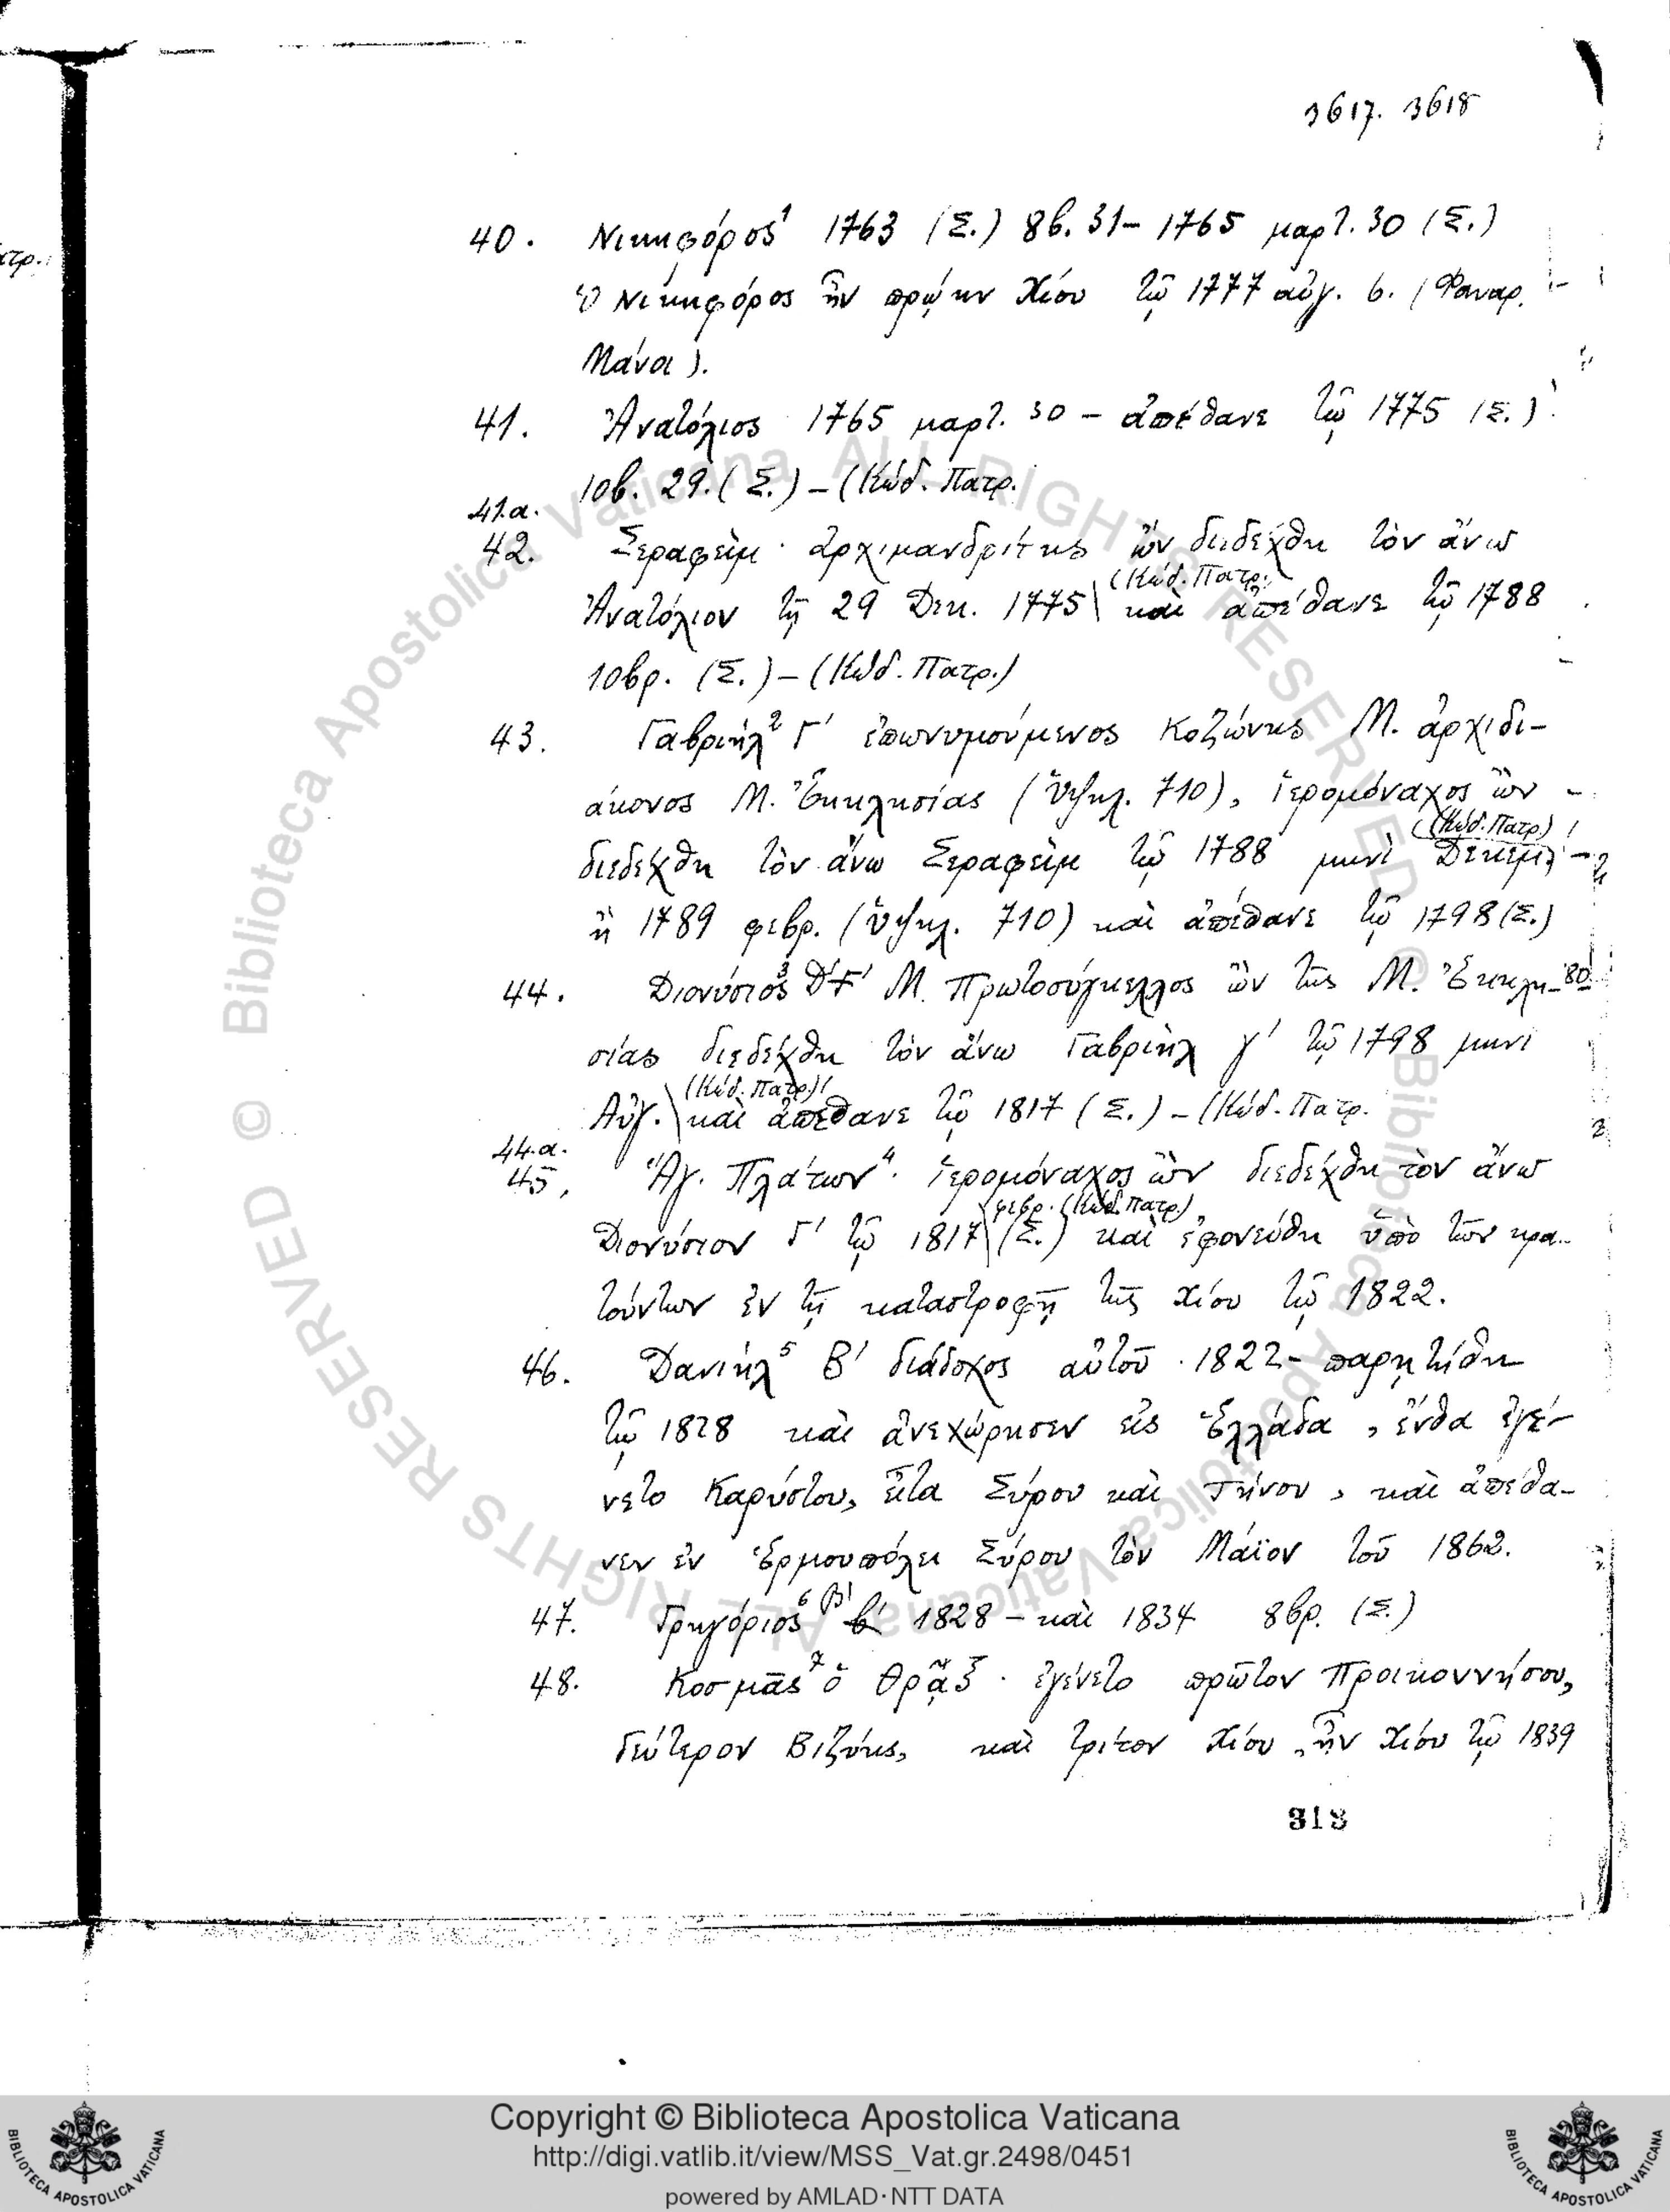 3617. 3618
40. Νικηφόρος¹ 1763 (Σ.) 8β. 31– 1765 μαρτ. 30 (Σ.)
Ὁ Νικηφόρος ἦν πρῴην Χίου τῷ 1777 αὐγ. 6. (Φαναρ.
Μάνα).
41. Ἀνατόλιος 1765 μαρτ. 30 – ἀπέθανε τῷ 1775 (Σ.)
10β. 29. (Σ.) – (Κώδ. Πατρ.
41.α.
42. Σεραφεὶμ · ἀρχιμανδρίτης ὢν διεδέχθη τὸν ἄνω
(Κώδ. Πατρ.)
Ἀνατόλιον τῇ 29 Δεκ. 1775\ καὶ ἀπέθανε τῷ 1788
10βρ. (Σ.) – (Κώδ. Πατρ.)
43. Γαβριὴλ² Γ' ἐπωνυμούμενος Κοζώνης Μ. ἀρχιδι-
άκονος Μ. Ἐκκλησίας (Ὑψηλ. 710), ἱερομόναχος ὢν
(Κώδ. Πατρ.)
διεδέχθη τὸν ἄνω Σεραφεὶμ τῷ 1788 μηνὶ Δεκεμ.
ἢ 1789 φεβρ. (Ὑψηλ. 710) καὶ ἀπέθανε τῷ 1798 (Σ.)
44. Διονύσιος³ Γ' Μ. Πρωτοσύγκελλος ὢν τῆς Μ. Ἐκκλη-
σίας διεδέχθη τὸν ἄνω Γαβριὴλ γ' τῷ 1798 μηνὶ
(Κώδ. Πατρ.)
Αὐγ.\ καὶ ἀπέθανε τῷ 1817 (Σ.) – (Κώδ. Πατρ.
44.α.
45. Ἁγ. Πλάτων⁴ · ἱερομόναχος ὢν διεδέχθη τὸν ἄνω
φεβρ. (Κώδ. Πατρ.)
Διονύσιον Γ' τῷ 1817\ (Σ.) καὶ ἐφονεύθη ὑπὸ τῶν κρα-
τούντων ἐν τῇ καταστροφῇ τῆς Χίου τῷ 1822.
46. Δανιὴλ⁵ Β' διάδοχος αὐτοῦ · 1822 – παρῃτήθη
τῷ 1828 καὶ ἀνεχώρησεν εἰς Ἑλλάδα, ἔνθα ἐγέ-
νετο Καρύστου, εἶτα Σύρου καὶ Τήνου, καὶ ἀπέθα-
νεν ἐν Ἑρμουπόλει Σύρου τὸν Μάϊον τοῦ 1862.
47. Γρηγόριος⁶ β' 1828 – καὶ 1834 8βρ. (Σ.)
48. Κοσμᾶς⁷ ὁ Θρᾷξ · ἐγένετο πρῶτον Προικοννήσου,
δεύτερον Βιζύης, καὶ τρίτον Χίου, ἦν Χίου τῷ 1839
318
© Biblioteca Apostolica Vaticana ALL RIGHTS RESERVED
Copyright © Biblioteca Apostolica Vaticana
http://digi.vatlib.it/view/MSS_Vat.gr.2498/0451
powered by AMLAD·NTT DATA
BIBLIOTECA APOSTOLICA VATICANA
BIBLIOTECA APOSTOLICA VATICANA